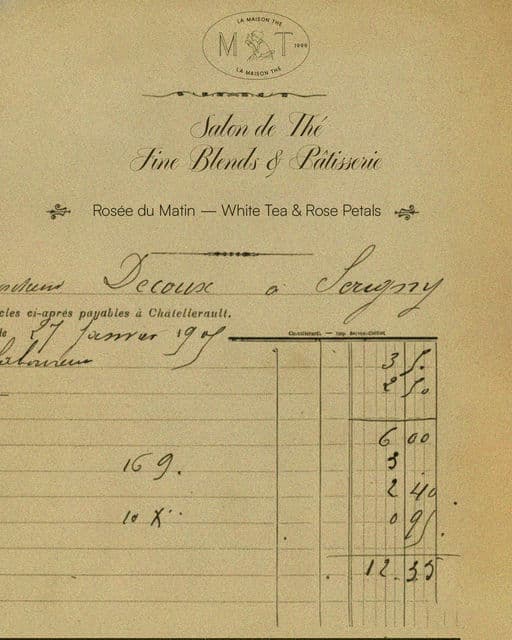 LA MAISON THÉ
M T 1999
LA MAISON THÉ
Salon de Thé
Fine Blends & Pâtisserie
Rosée du Matin — White Tea & Rose Petals
Decoux à Serigny
cles ci-après payables à Châtellerault.
27 Janvier 1905
Châtellerault. — Imp.
3 50
2 50
6 00
16 9.
3
2 40
10 X
0 95
12.35